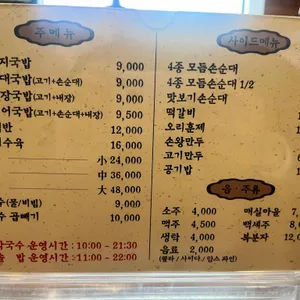 주메뉴
지국밥 9,000
대국밥(고기+손순대) 9,000
장국밥(고기+내장) 9,000
어국밥(고기+손순대+내장) 9,500
반 12,000
수육 16,000
小 24,000
中 36,000
大 48,000
수(물/비빔) 9,000
수 곱빼기 10,000
국수 운영시간 : 10:00 - 21:30
밥 운영시간 : 11:00 - 22:00
사이드메뉴
4종 모듬손순대
4종 모듬손순대 1/2
맛보기손순대
떡갈비
오리훈제
손왕만두
고기만두
공기밥
음·주류
소주 4,000
맥주 4,500
생락 4,000
음료 2,000
(콜라/사이다/
매실마을 7
백세주 8
복분자 12,0